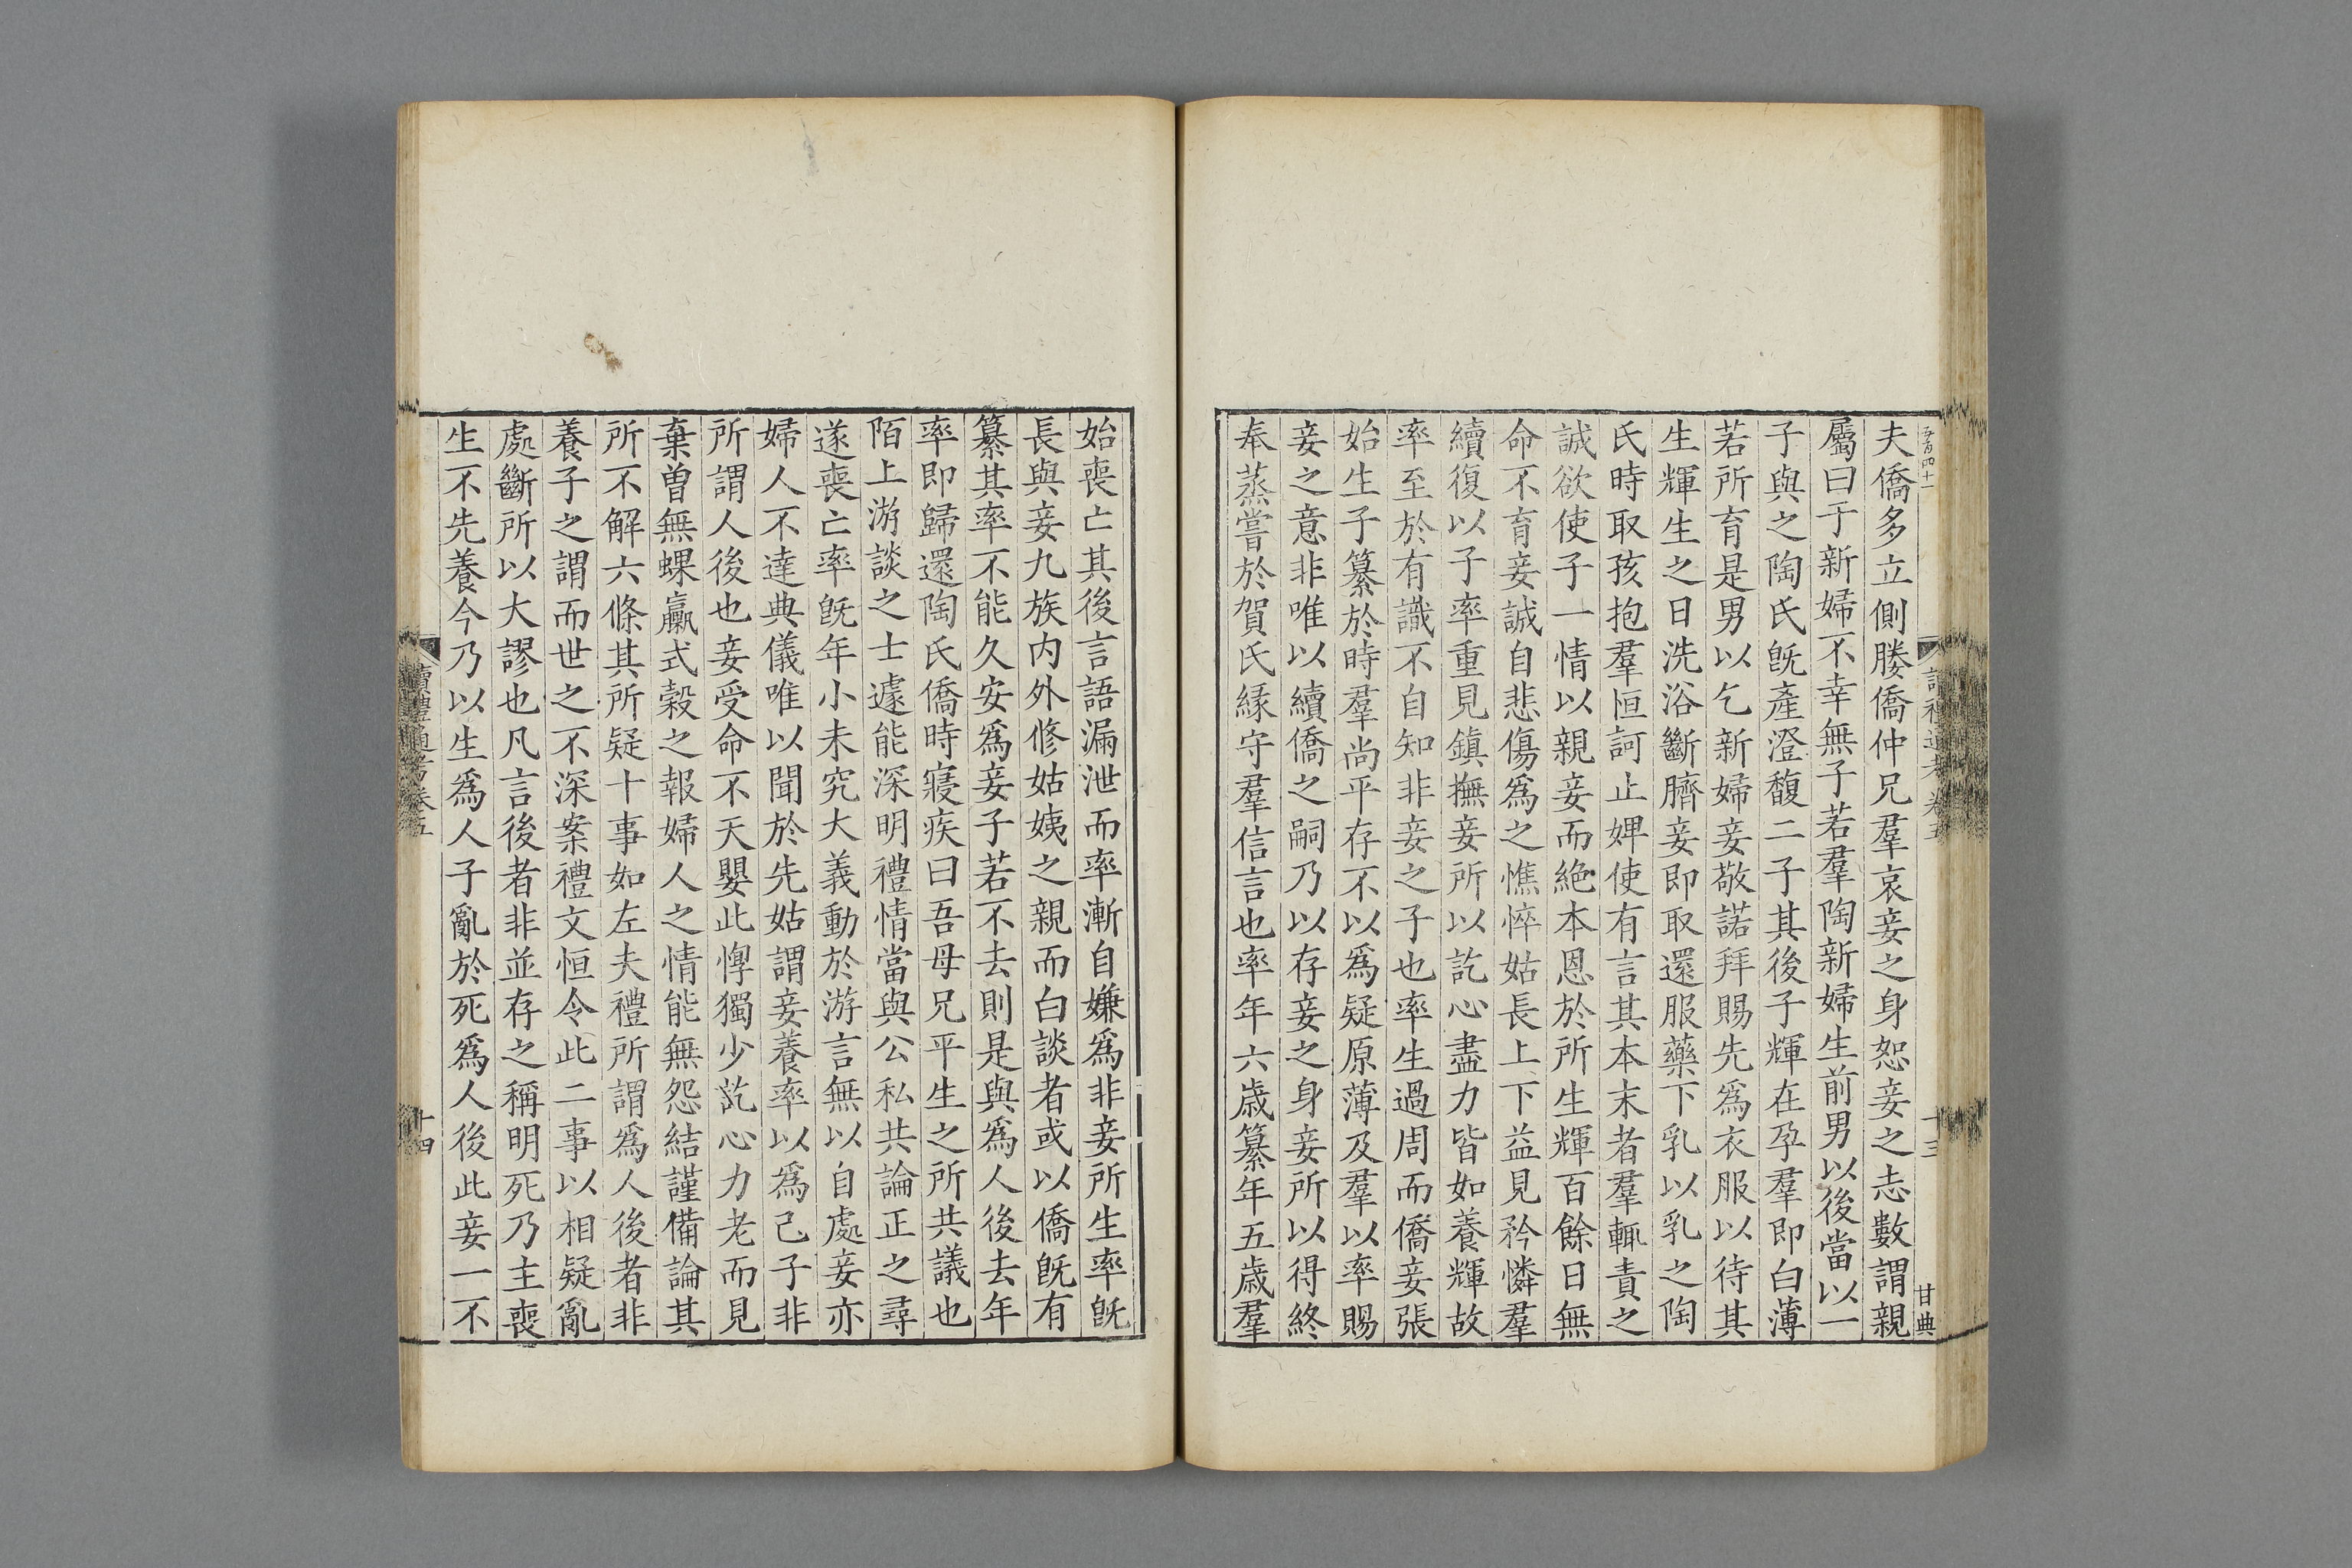 夫僑多立側媵僑仲兄羣哀妾之身恕妾之志數謂親
屬曰于新婦不幸無子若羣陶新婦生前男以後當以一
子與之陶氏旣產澄馥二子其後子輝在孕羣即白薄
若所育是男以乞新婦妾敬諾拜賜先爲衣服以待其
生輝生之日洗浴斷臍妾即取還服藥下乳以乳之陶
氏時取孩抱羣恒訶止婢使有言其本末者羣輒責之
誠欲使子一情以親妾而絶本恩於所生輝百餘日無
命不育妾誠自悲傷爲之憔悴姑長上下益見矜憐羣
續復以子率重見鎮撫妾所以訖心盡力皆如養輝故
率至於有識不自知非妾之子也率生過周而僑妾張
始生子纂於時羣尚平存不以爲疑原薄及羣以率賜
妾之意非唯以續僑之嗣乃以存妾之身妾所以得終
奉蒸嘗於賀氏緣守羣信言也率年六歲纂年五歲羣
始喪亡其後言語漏泄而率漸自嫌爲非妾所生率旣
長與妾九族内外修姑姨之親而白談者或以僑旣有
纂其率不能久安爲妾子若不去則是與爲人後去年
率即歸還陶氏僑時寢疾曰吾母兄平生之所共議也
陌上游談之士遽能深明禮情當與公私共論正之尋
遂喪亡率旣年小未究大義動於游言無以自處妾亦
婦人不達典儀唯以聞於先姑謂妾養率以爲己子非
所謂人後也妾受命不天嬰此惸獨少訖心力老而見
棄曾無蜾蠃式穀之報婦人之情能無怨結謹備論其
所不解六條其所疑十事如左夫禮所謂爲人後者非
養子之謂而世之不深案禮文恒令此二事以相疑亂
處斷所以大謬也凡言後者非並存之稱明死乃主喪
生不先養今乃以生爲人子亂於死爲人後此妾一不
讀禮通考卷五
十四
五百四十一
讀禮通考 卷五
十三
甘典